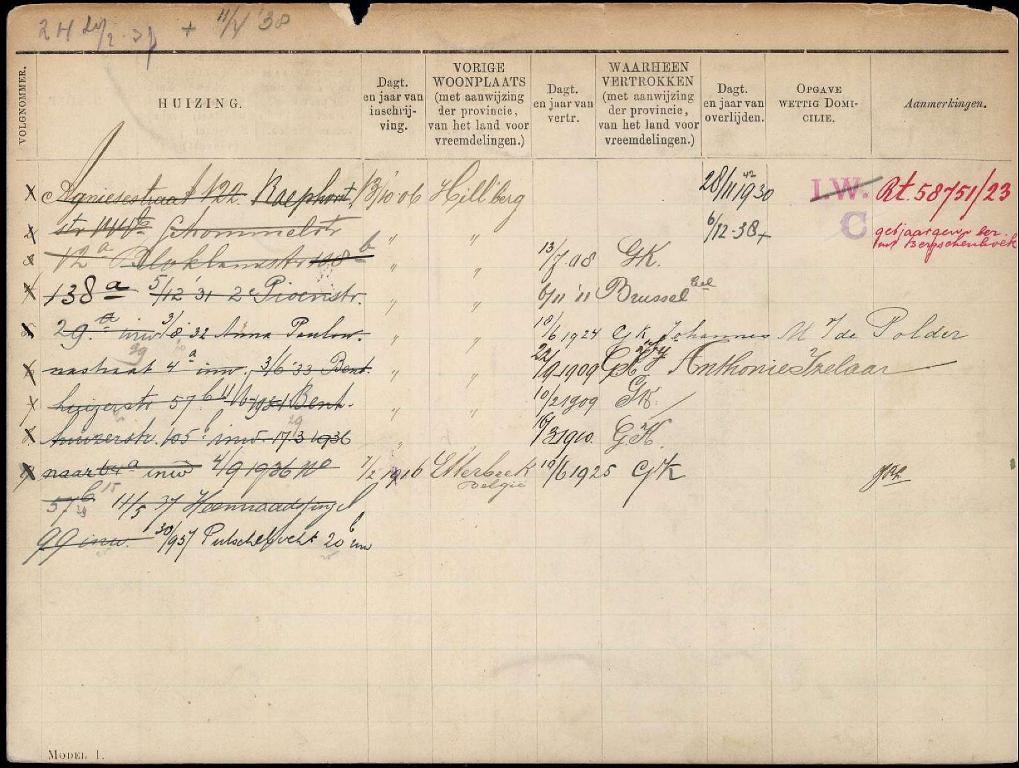 + 11/V '38
VOLGNOMMER.
HUIZING.
Dagt. en jaar van inschrij- ving.
VORIGE WOONPLAATS (met aanwijzing der provincie, van het land voor vreemdelingen.)
Dagt. en jaar van vertr.
WAARHEEN VERTROKKEN (met aanwijzing der provincie, van het land voor vreemdelingen.)
Dagt. en jaar van overlijden.
OPGAVE WETTIG DOMI- CILIE.
Aanmerkingen.
Agniesestraat 122 Raephorst 13/10 06 Hill'berg 28/11 1930 I.W. Rt. 58751/23
str Schommelstr " " 6/12-38 + C
12a Bloklandstr 108b " " 13/7 08 GK.
138a 5/12 '31 2e Pioenstr. " " 6/11 '11 Brussel
29a inw 3/8 '32 Anna Paulow- " " 18/6 1924 GK Johannes M v/de Polder
nastraat 4a inw. 3/6 '33 Bent- " " 22/9 1909 GK Anthonie Izelaar
huizerstr 57b Bent- " " 10/2 1909 GK.
huizerstr. 105b inw. 17/3 1936 " " 16/3 1910. GK.
naar 64a inw 4/9 1936 no 7/2 1916 Etterbeek België 19/6 1925 GK
57b 11/5 37 Heemraadsingel
99 inw. 30/9 37 Putschebocht 20b inw
MODEL 1.